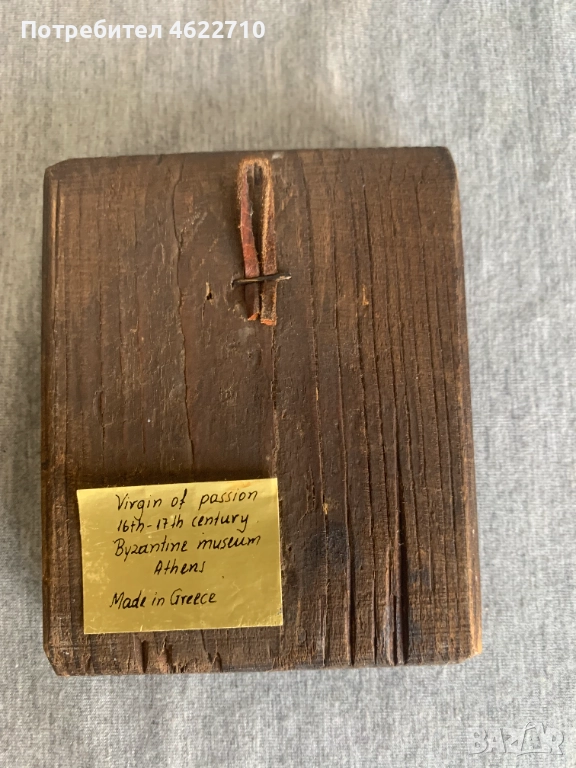 Потребител 4622710
Virgin of passion
16th-17th century
Byzantine museum
Athens
Made in Greece
BAZAR